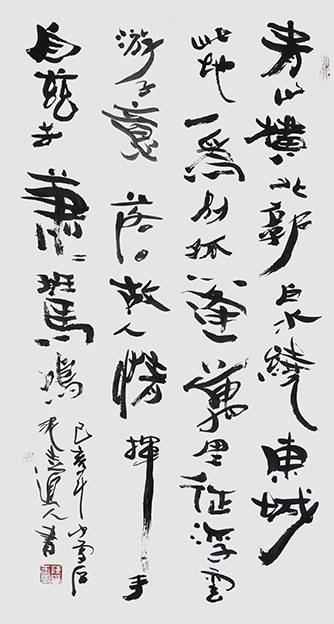 青山橫北郭白水繞東城
此地一為別孤蓬萬里征浮雲
游子意落日故人情揮手
自茲去蕭〻班馬鳴
己亥年小雪后
道人書